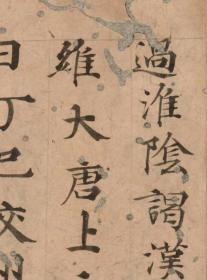 過淮陰謁漢
維大唐上元
日丁巳校